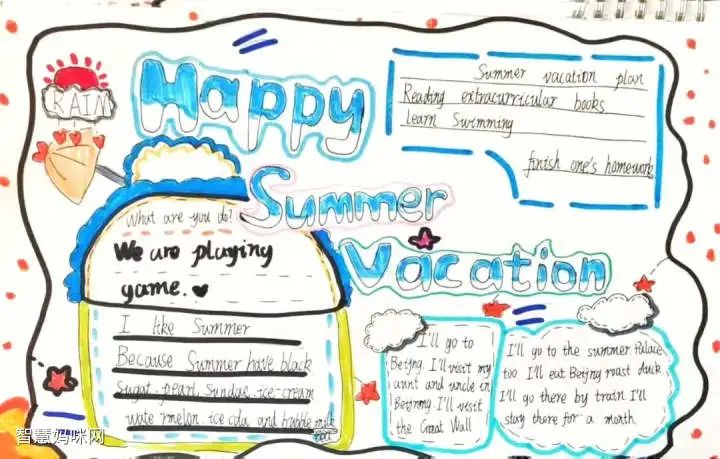 RAIN
Happy
Summer
Vacation
Summer vacation plan
Reading extracurricular books
learn Swimming
finish one's homework
What are you do?
We are playing
game.
I like Summer
Because Summer have black
sugat pearl Sundae ice-cream
wate rmelon ice cola and bubble milk
I'll go to
Beijng. I'll visit my
aunt and uncle in
I'll visit
the Great Wall
I'll go to the summer Palace
too I'll eat Beijng roast duck
I'll go there by train I'll
stay there for a month
智慧妈咪网